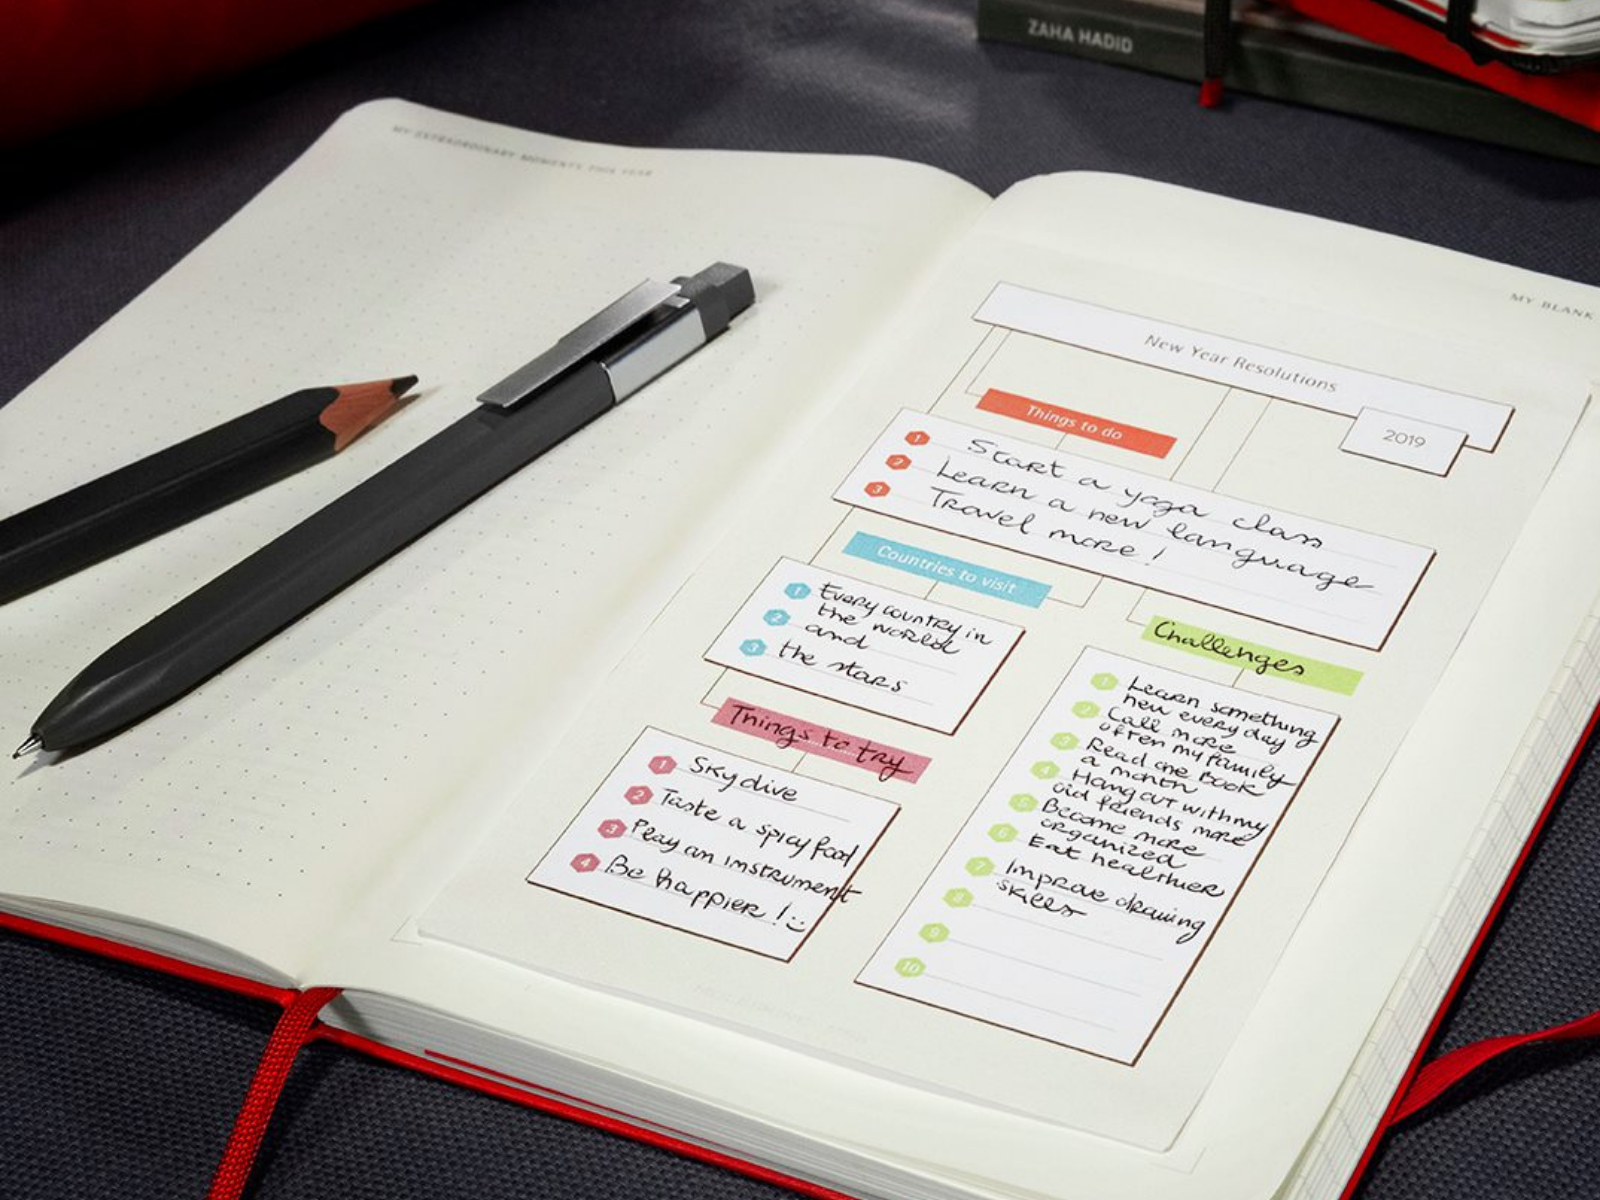 ZAHA HADID
MY EXTRAORDINARY MOMENTS THIS YEAR
MY BLANK
New Year Resolutions
2019
Things to do
1 Start a yoga class
2 Learn a new language
3 Travel more!
Countries to visit
1 Every country in
2 the world
and
3 the stars
Things to try
1 Skydive
2 Taste a spicy food
3 Play an instrument
4 Be happier! :)
Challenges
1 Learn something
new every day
2 Call more
often my family
3 Read one Book
a month
4 Hang out with my
old friends more
5 Become more
organized
6 Eat healthier
7 Improve drawing
8 skills
9
10